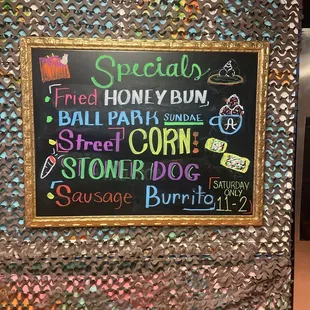 Specials
Fried HONEY BUN,
BALL PARK SUNDAE
Street CORN
STONER DOG
Sausage Burrito
SATURDAY
ONLY
11-2